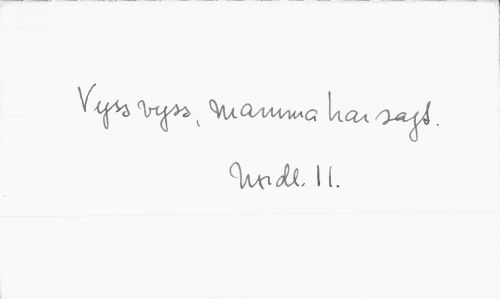 Vyss vyss, mamma har sagt.
Nordl. 11.